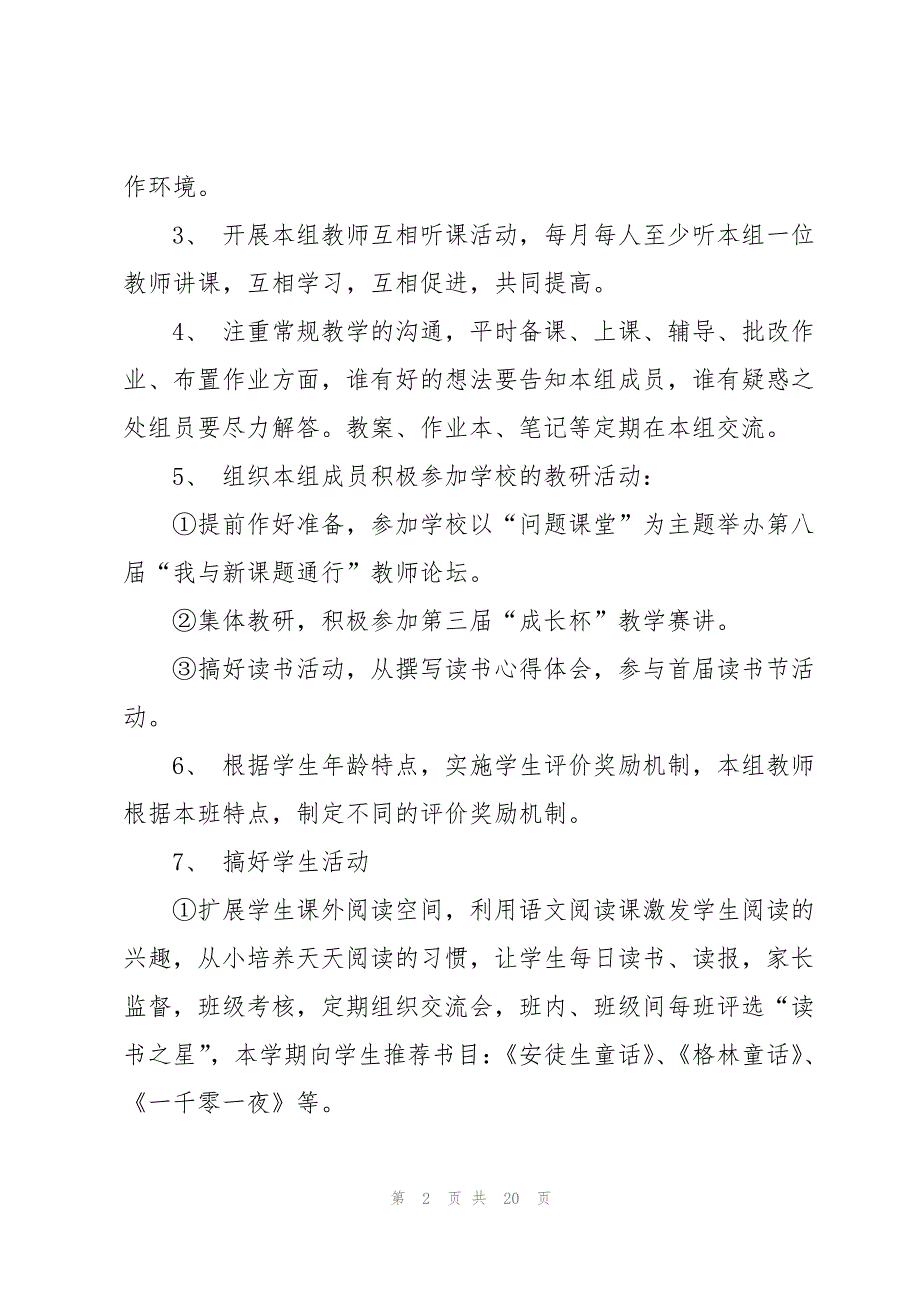 作环境。
3、 开展本组教师互相听课活动，每月每人至少听本组一位
教师讲课，互相学习，互相促进，共同提高。
4、 注重常规教学的沟通，平时备课、上课、辅导、批改作
业、布置作业方面，谁有好的想法要告知本组成员，谁有疑惑之
处组员要尽力解答。教案、作业本、笔记等定期在本组交流。
5、 组织本组成员积极参加学校的教研活动：
①提前作好准备，参加学校以“问题课堂”为主题举办第八
届“我与新课题通行”教师论坛。
②集体教研，积极参加第三届“成长杯”教学赛讲。
③搞好读书活动，从撰写读书心得体会，参与首届读书节活
动。
6、 根据学生年龄特点，实施学生评价奖励机制，本组教师
根据本班特点，制定不同的评价奖励机制。
7、 搞好学生活动
①扩展学生课外阅读空间，利用语文阅读课激发学生阅读的
兴趣，从小培养天天阅读的习惯，让学生每日读书、读报，家长
监督，班级考核，定期组织交流会，班内、班级间每班评选“读
书之星”，本学期向学生推荐书目：《安徒生童话》、《格林童话》、
《一千零一夜》等。
第 2 页 共 20 页